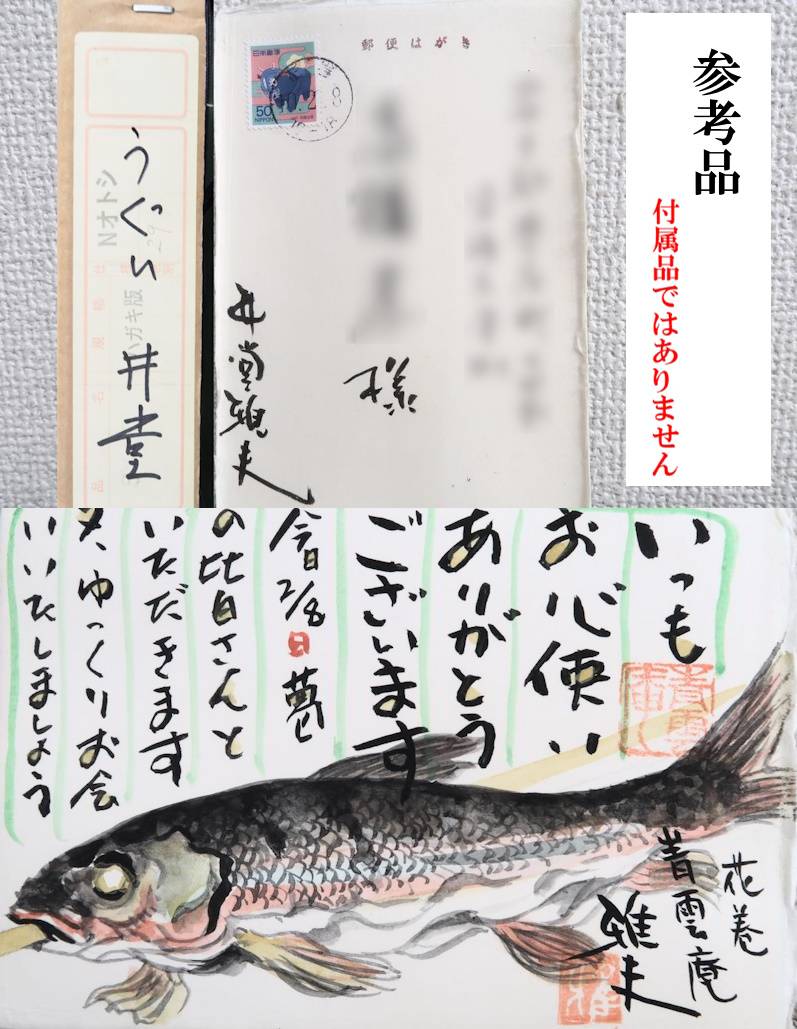 参考品
付属品ではありません
郵便はがき
日本郵便
50
NIPPON
井堂雅夫
様
うぐい 井堂
Nオトシ
ハガキ版
いつも
お心使い
ありがとう
ございます
今日2/8日
の皆さんと
いただきます
ゆっくりお会
いいたしましょう
花巻
青雲庵
雅夫